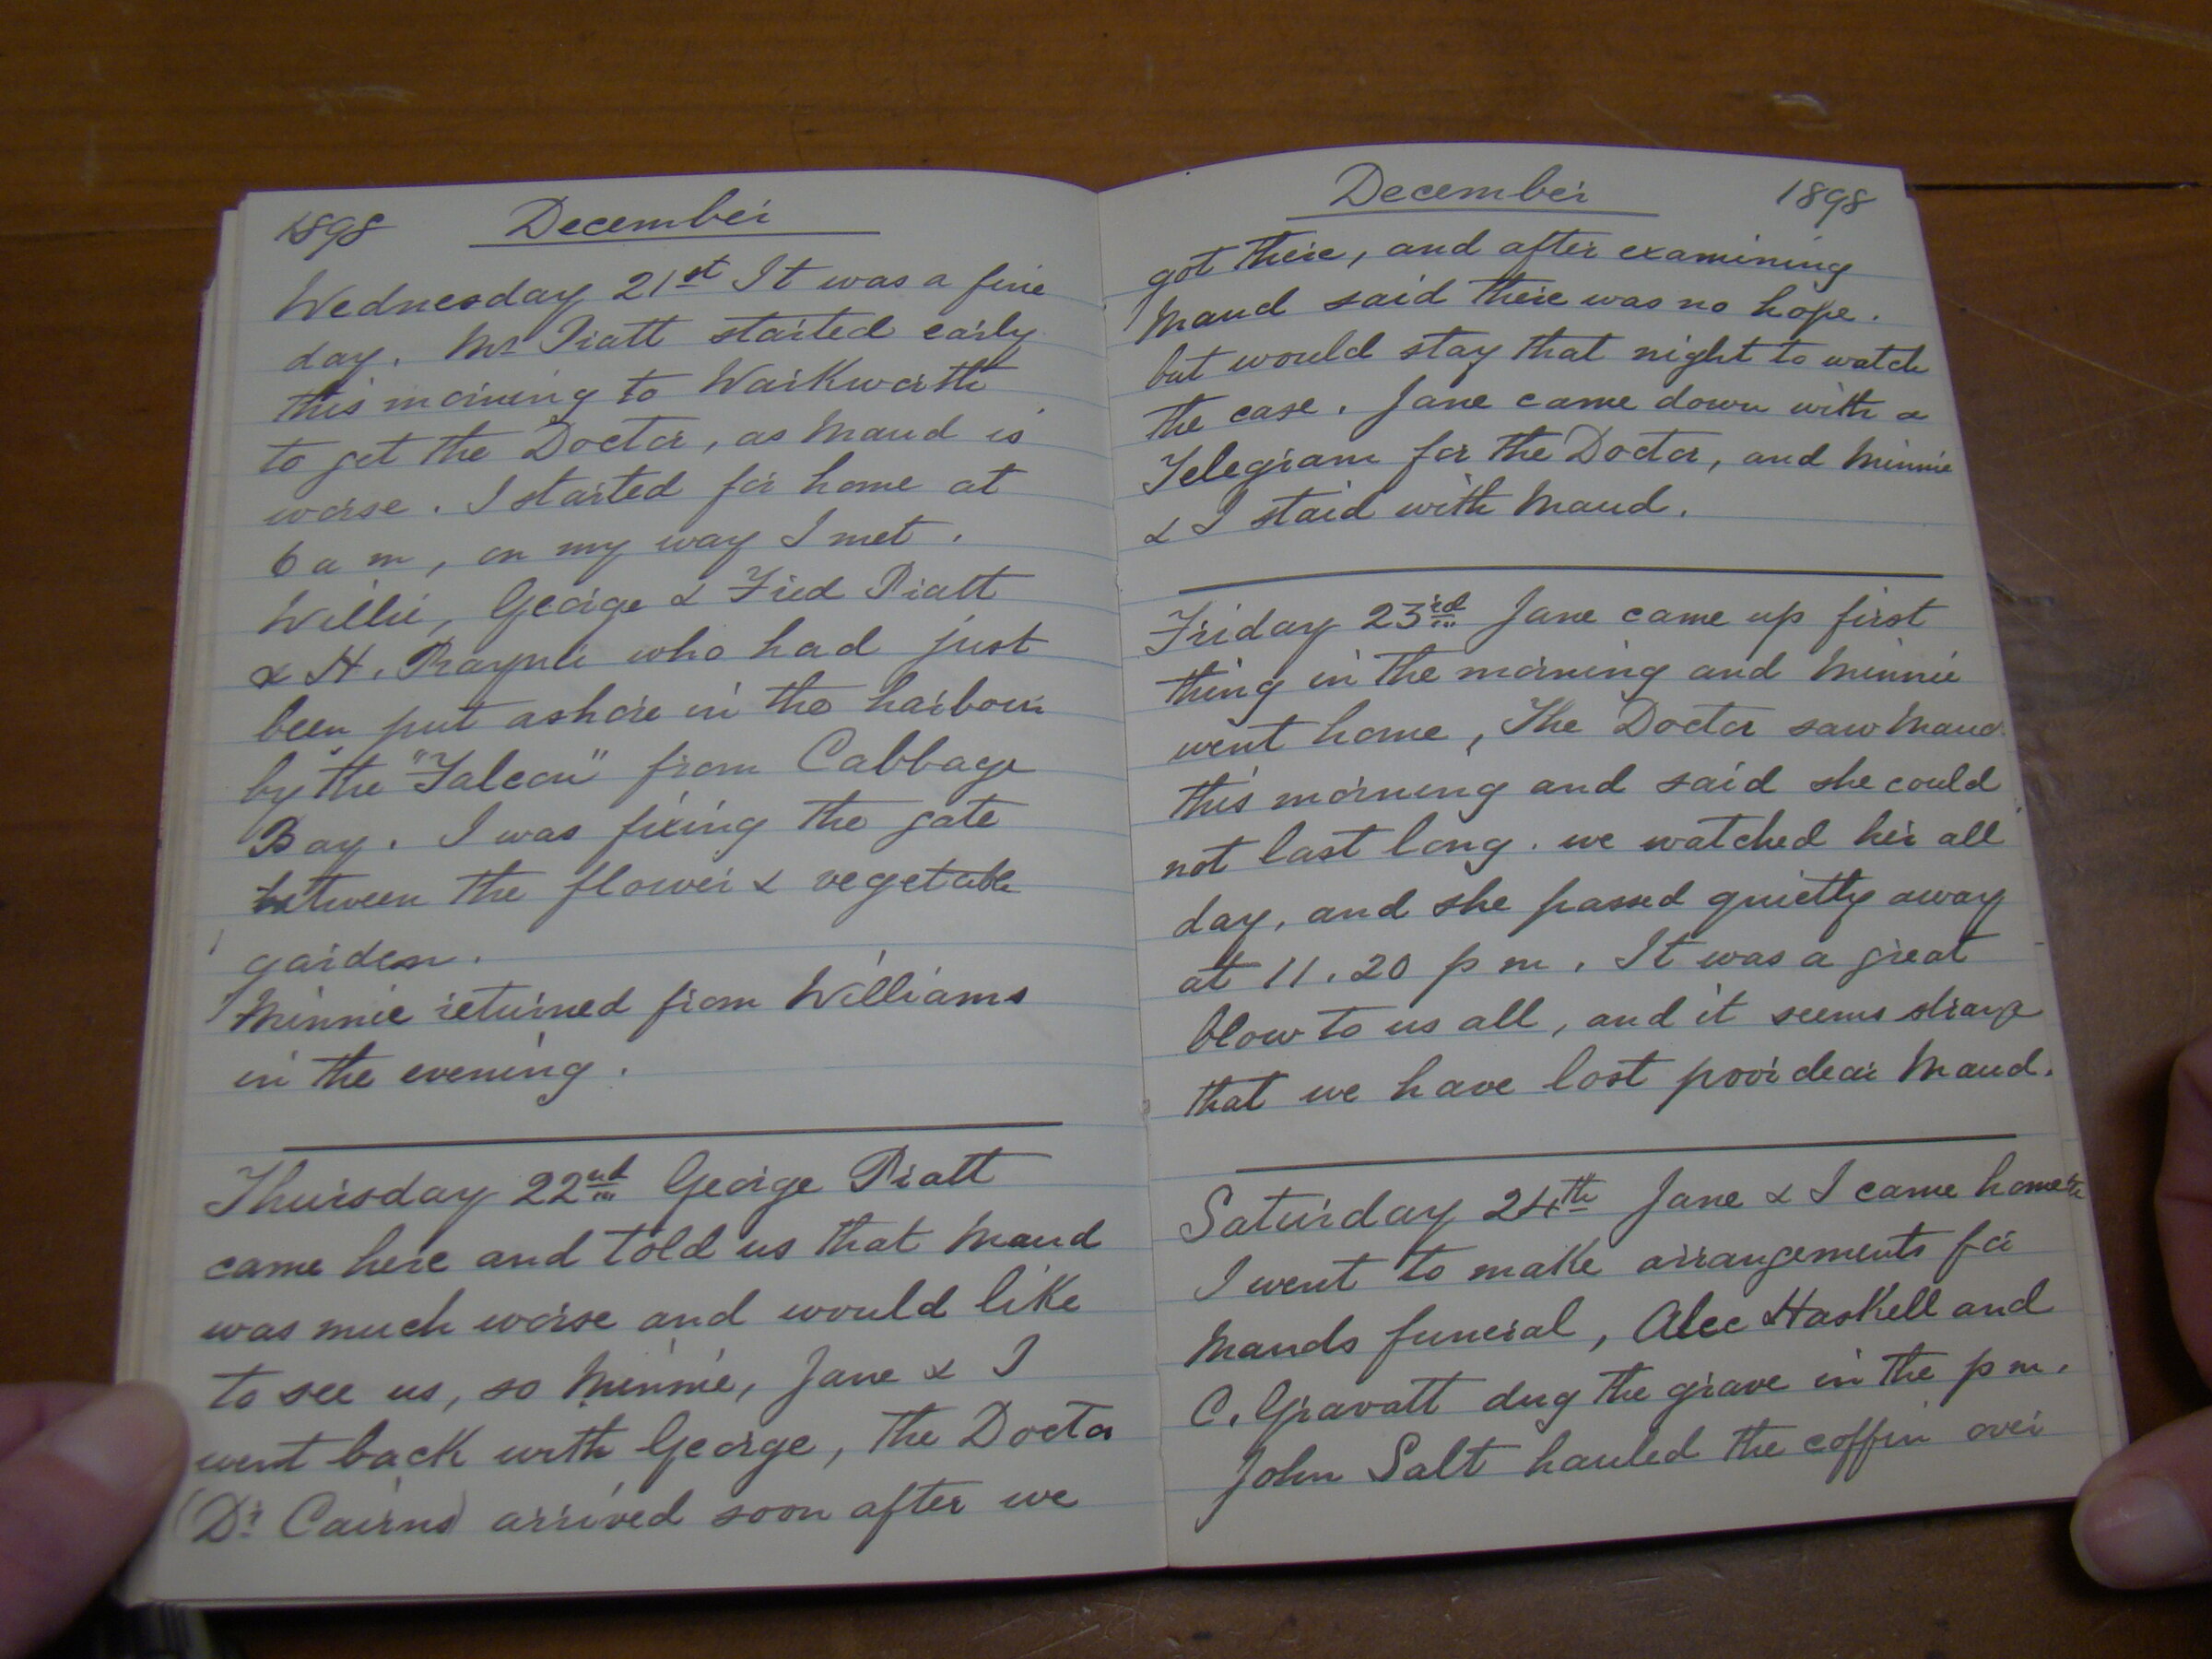 1898 December
Wednesday 21st It was a fine
day. Mr Pratt started early
this morning to Warkworth
to get the Doctor, as Maud is
worse. I started for home at
6 a m, on my way I met.
Willie, George & Fred Pratt
& H. who had just
been put ashore in the harbour
by the "Falcon" from Cabbage
Bay. I was fixing the gate
between the flower & vegetable
garden.
Minnie returned from Williams
in the evening.
Thursday 22nd George Pratt
came here and told us that Maud
was much worse and would like
to see us, so Minnie, Jane & I
went back with George, the Doctor
(Dr Cairns) arrived soon after we
December 1898
got there, and after examining
Maud said there was no hope.
but would stay that night to watch
the case. Jane came down with a
Telegram for the Doctor, and Minnie
& I staid with Maud.
Friday 23rd Jane came up first
thing in the morning and Minnie
went home, The Doctor saw Maud
this morning and said she could
not last long. we watched her all
day, and she passed quietly away
at 11.20 p m. It was a great
blow to us all, and it seems strange
that we have lost poor dear Maud.
Saturday 24th Jane & I came home
I went to make arrangements for
Mauds funeral, Alec Haskell and
C. Gravatt dug the grave in the p m.
John Salt hauled the coffin over